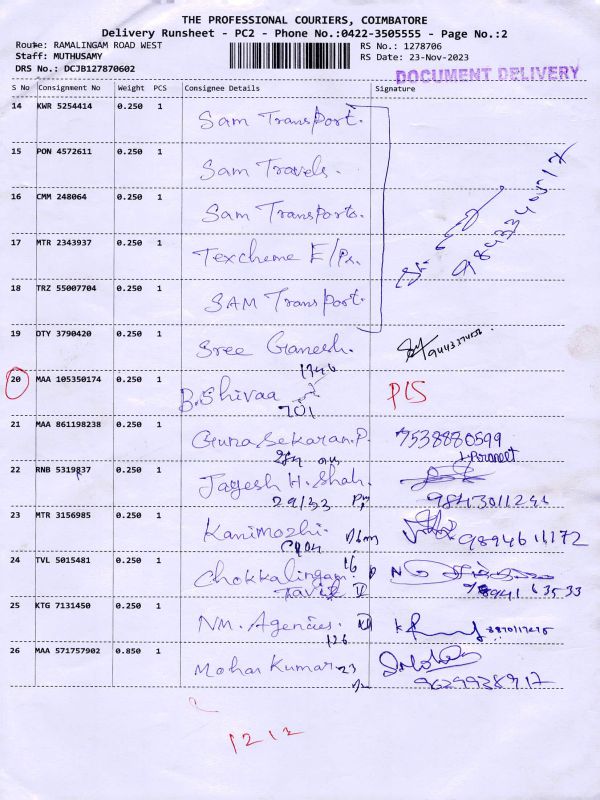 THE PROFESSIONAL COURIERS, COIMBATORE
Delivery Runsheet - PC2 - Phone No.:0422-3505555 - Page No.:2
Route: RAMALINGAM ROAD WEST
RS No.: 1278706
Staff: MUTHUSAMY
RS Date: 23-Nov-2023
DRS No.: DCJB127870602
DOCUMENT DELIVERY
S No Consignment No Weight PCS Consignee Details Signature
14 KWR 5254414 0.250 1 Sam Transport.
15 PON 4572611 0.250 1 Sam Travels.
16 CMM 248064 0.250 1 Sam Transports.
17 MTR 2343937 0.250 1 Texcheme E/Ps.
18 TRZ 55007704 0.250 1 SAM Transport.
19 DTY 3790420 0.250 1 Sree Ganesh.
1746
20 MAA 105350174 0.250 1 B.Shivaa
701
21 MAA 861198238 0.250 1 Guna Sekaran.P. 7538880599
22 RNB 5319837 0.250 1 Jayesh H. Shah.
29/33 9843011241
23 MTR 3156985 0.250 1 Kanimozhi. 9894611172
24 TVL 5015481 0.250 1 Chokkalingam
25 KTG 7131450 0.250 1 NM. Agencies.
126
26 MAA 571757902 0.850 1 Mohan Kumar 23
9629938917
1212